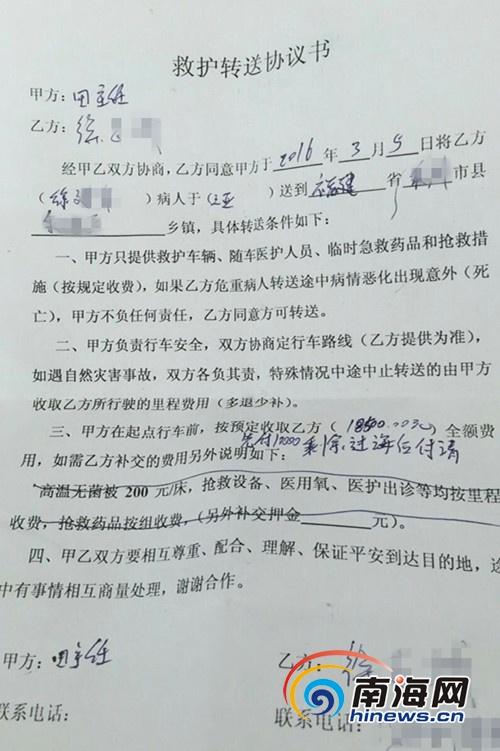 救护转送协议书
甲方：田主任
乙方：徐
经甲乙双方协商，乙方同意甲方于 2016 年 3 月 5 日将乙方
（徐 ）病人于（三亚 ）送到 福建 省 市县
乡镇，具体转送条件如下：
一、甲方只提供救护车辆、随车医护人员、临时急救药品和抢救措
施（按规定收费），如果乙方危重病人转送途中病情恶化出现意外（死
亡），甲方不负任何责任，乙方同意方可转送。
二、甲方负责行车安全，双方协商定行车路线（乙方提供为准），
如遇自然灾害事故，双方各负其责，特殊情况中途中止转送的由甲方
收取乙方所行驶的里程费用（多退少补）。
三、甲方在起点行车前，按预定收取乙方（18500.00元）全额费
先付10000剩余过海后付清
用，如需乙方补交的费用另外说明如下：
高温无菌被 200 元/床，抢救设备、医用氧、医护出诊等均按里程
收费，抢救药品按组收费，（另外补交押金 元）。
四、甲乙双方要相互尊重、配合、理解、保证平安到达目的地，途
中有事情相互商量处理，谢谢合作。
甲方：田主任
乙方：徐
联系电话：
联系电话：
南海网
hinews.cn